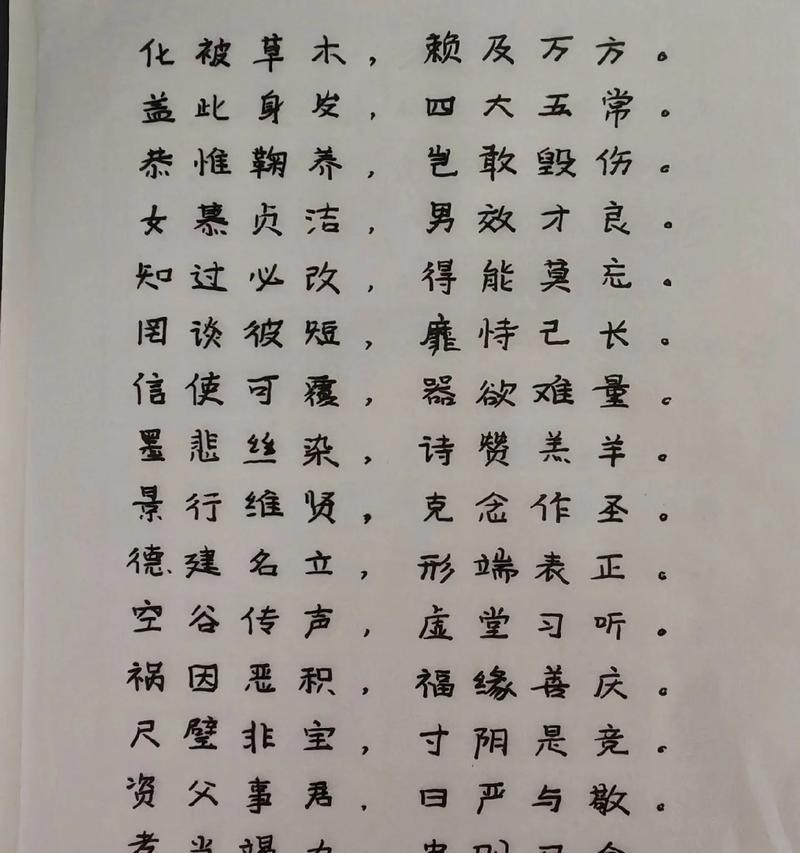 化被草木，赖及万方。
盖此身发，四大五常。
恭惟鞠养，岂敢毁伤。
女慕贞洁，男效才良。
知过必改，得能莫忘。
罔谈彼短，靡恃己长。
信使可覆，器欲难量。
墨悲丝染，诗赞羔羊。
景行维贤，克念作圣。
德建名立，形端表正。
空谷传声，虚堂习听。
祸因恶积，福缘善庆。
尺璧非宝，寸阴是竞。
资父事君，曰严与敬。
孝当竭力，忠则尽命